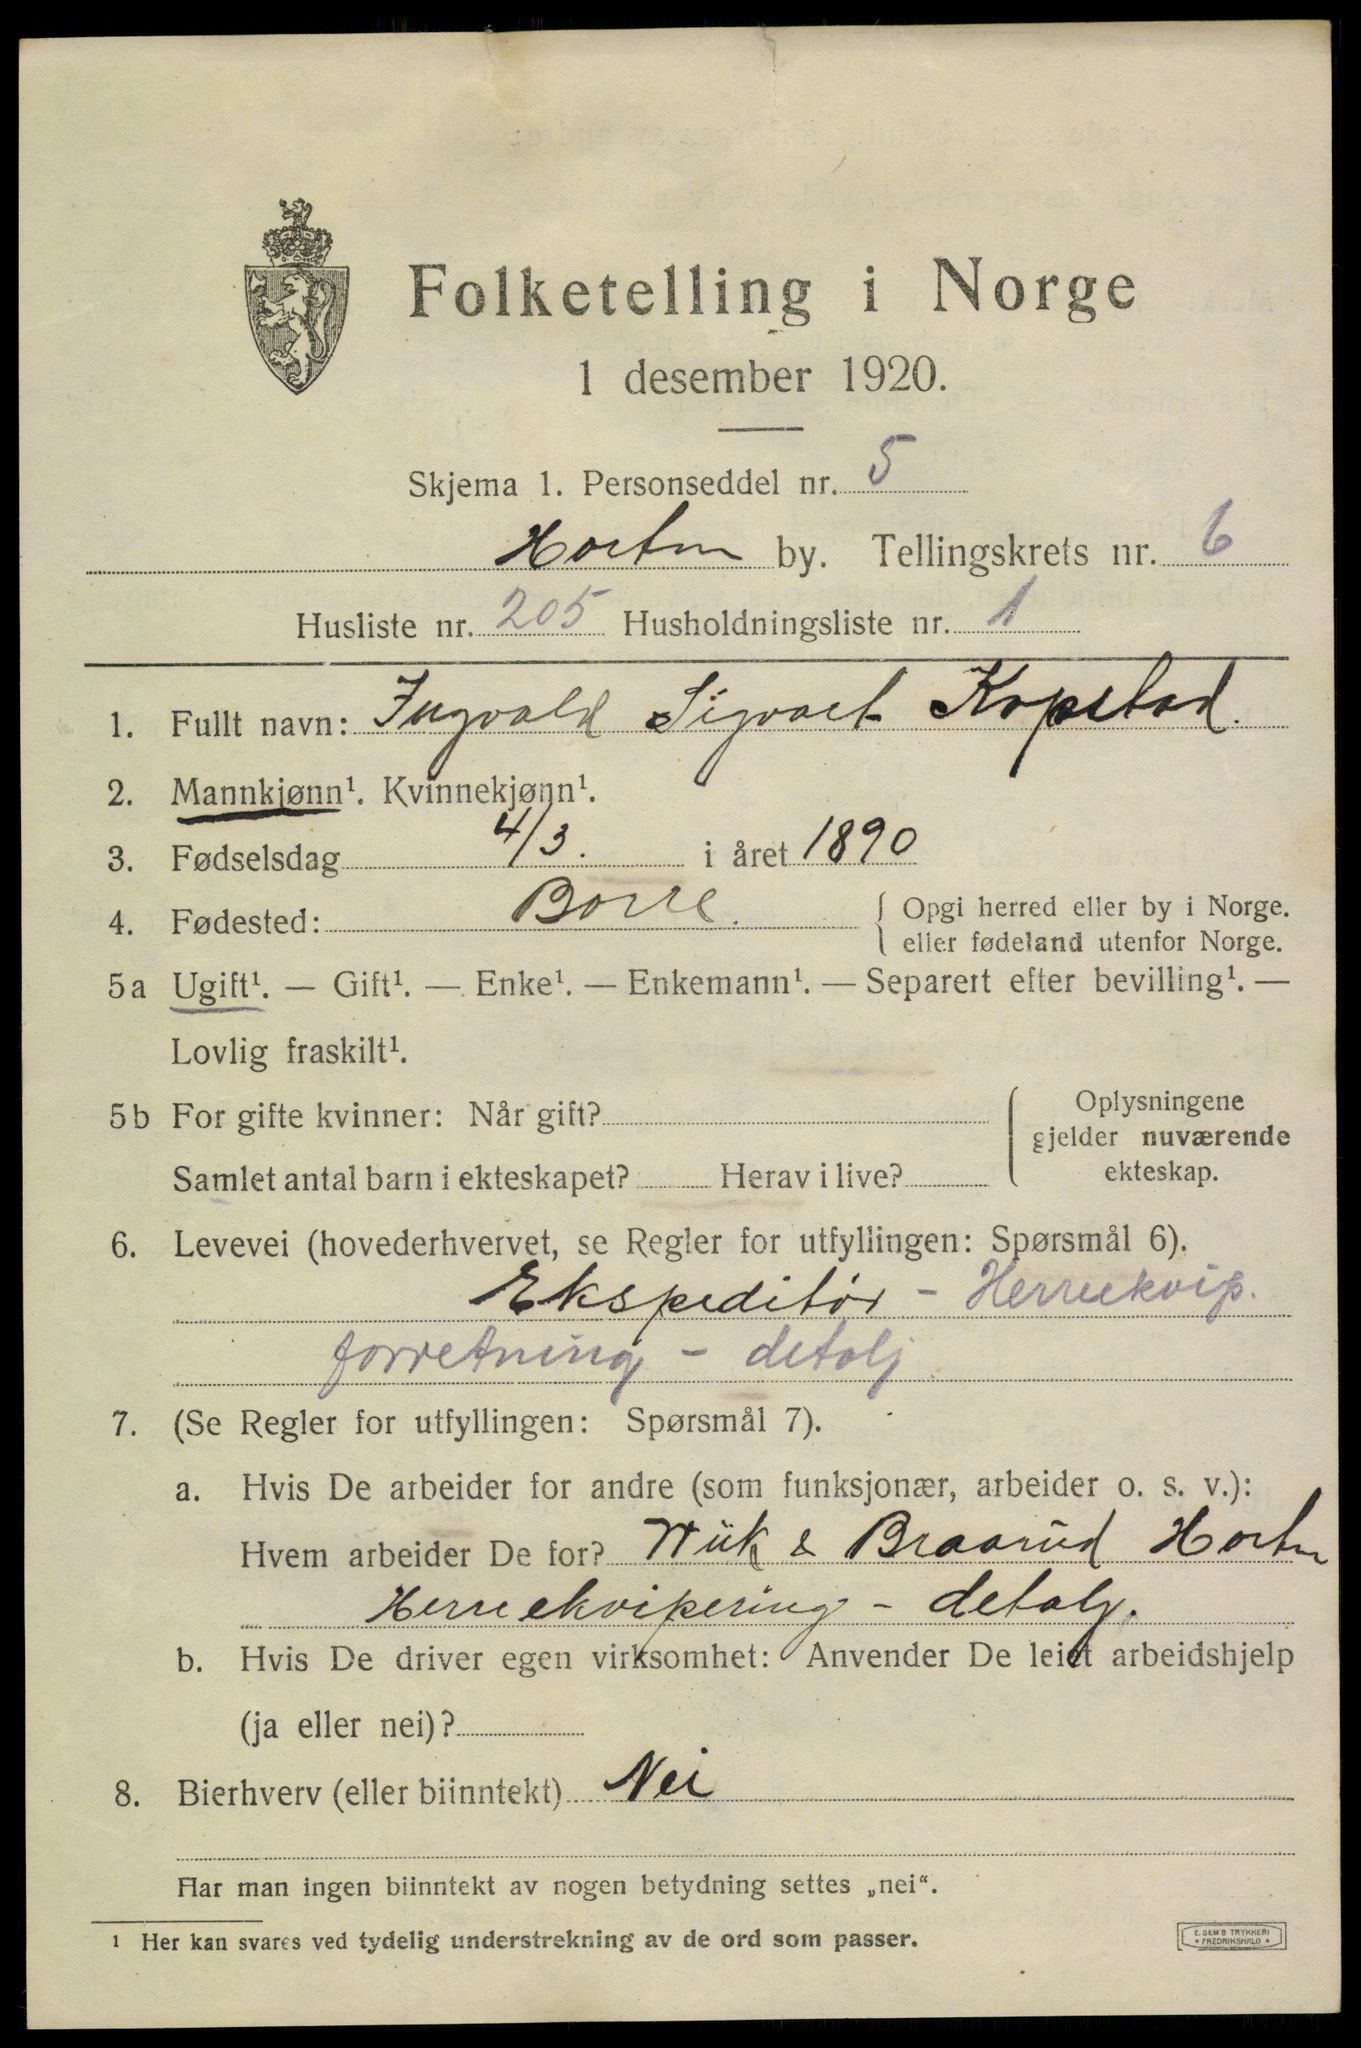 Folketelling i Norge
1 desember 1920.
Skjema 1. Personseddel nr. 5
Horten by. Tellingskrets nr. 6
Husliste nr. 205 Husholdningsliste nr. 1
1. Fullt navn: Ingvald Sigvart Kopstad.
2. Mannkjønn¹. Kvinnekjønn¹.
3. Fødselsdag 4/3. i året 1890
4. Fødested: Borre. { Opgi herred eller by i Norge.
eller fødeland utenfor Norge.
5a Ugift¹. — Gift¹. — Enke¹. — Enkemann¹. — Separert efter bevilling¹. —
Lovlig fraskilt¹.
5b For gifte kvinner: Når gift?
Samlet antal barn i ekteskapet? Herav i live?
Oplysningene
gjelder nuværende
ekteskap.
6. Levevei (hovederhvervet, se Regler for utfyllingen: Spørsmål 6).
Ekspeditør – Herreekvip.
forretning – detalj
7. (Se Regler for utfyllingen: Spørsmål 7).
a. Hvis De arbeider for andre (som funksjonær, arbeider o. s. v.):
Hvem arbeider De for? Wiik & Braarud Horten
Herreekvipering – detalj.
b. Hvis De driver egen virksomhet: Anvender De leiet arbeidshjelp
(ja eller nei)?
8. Bierhverv (eller biinntekt) Nei
Har man ingen biinntekt av nogen betydning settes „nei“.
¹ Her kan svares ved tydelig understrekning av de ord som passer.
E. SEM'S TRYKKERI
* FREDRIKSHALD *